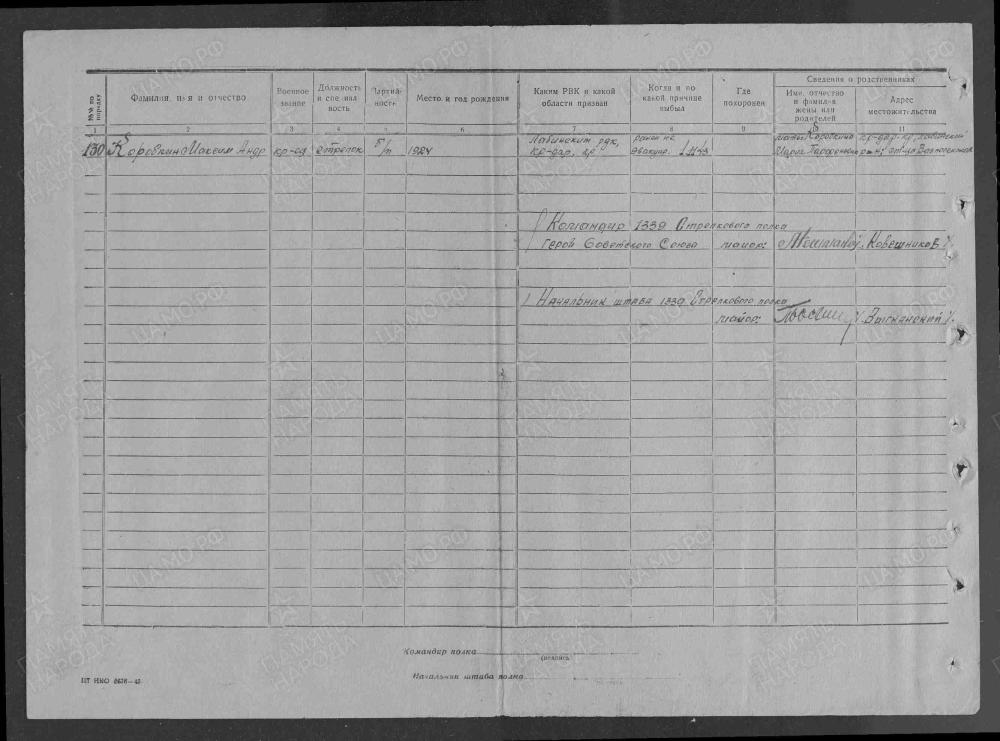 №№ по порядку
Фамилия, имя и отчество
Военное звание
Должность и специальность
Партийность
Место и год рождения
Каким РВК и какой области призван
Когда и по какой причине выбыл
Где похоронен
Сведения о родственниках
Имя, отчество и фамилия жены или родителей
Адрес местожительства
1 2 3 4 5 6 7 8 9 10 11
130 Коровкин Максим Андр кр-ец стрелок б/п 1924 Лабинским рвк, кр-дар. кр ранен эвакуир. мать Коровкина Парфеновна кр-дар-кр, Лабинский р-н, ст-ца
Командир 1339 Стрелкового полка
Герой Советского Союза майор: Ковешников
Начальник штаба 1339 Стрелкового полка
майор:
Командир полка
(подпись)
Начальник штаба полка
ПАМЯТЬ НАРОДА
ЦАМО.РФ